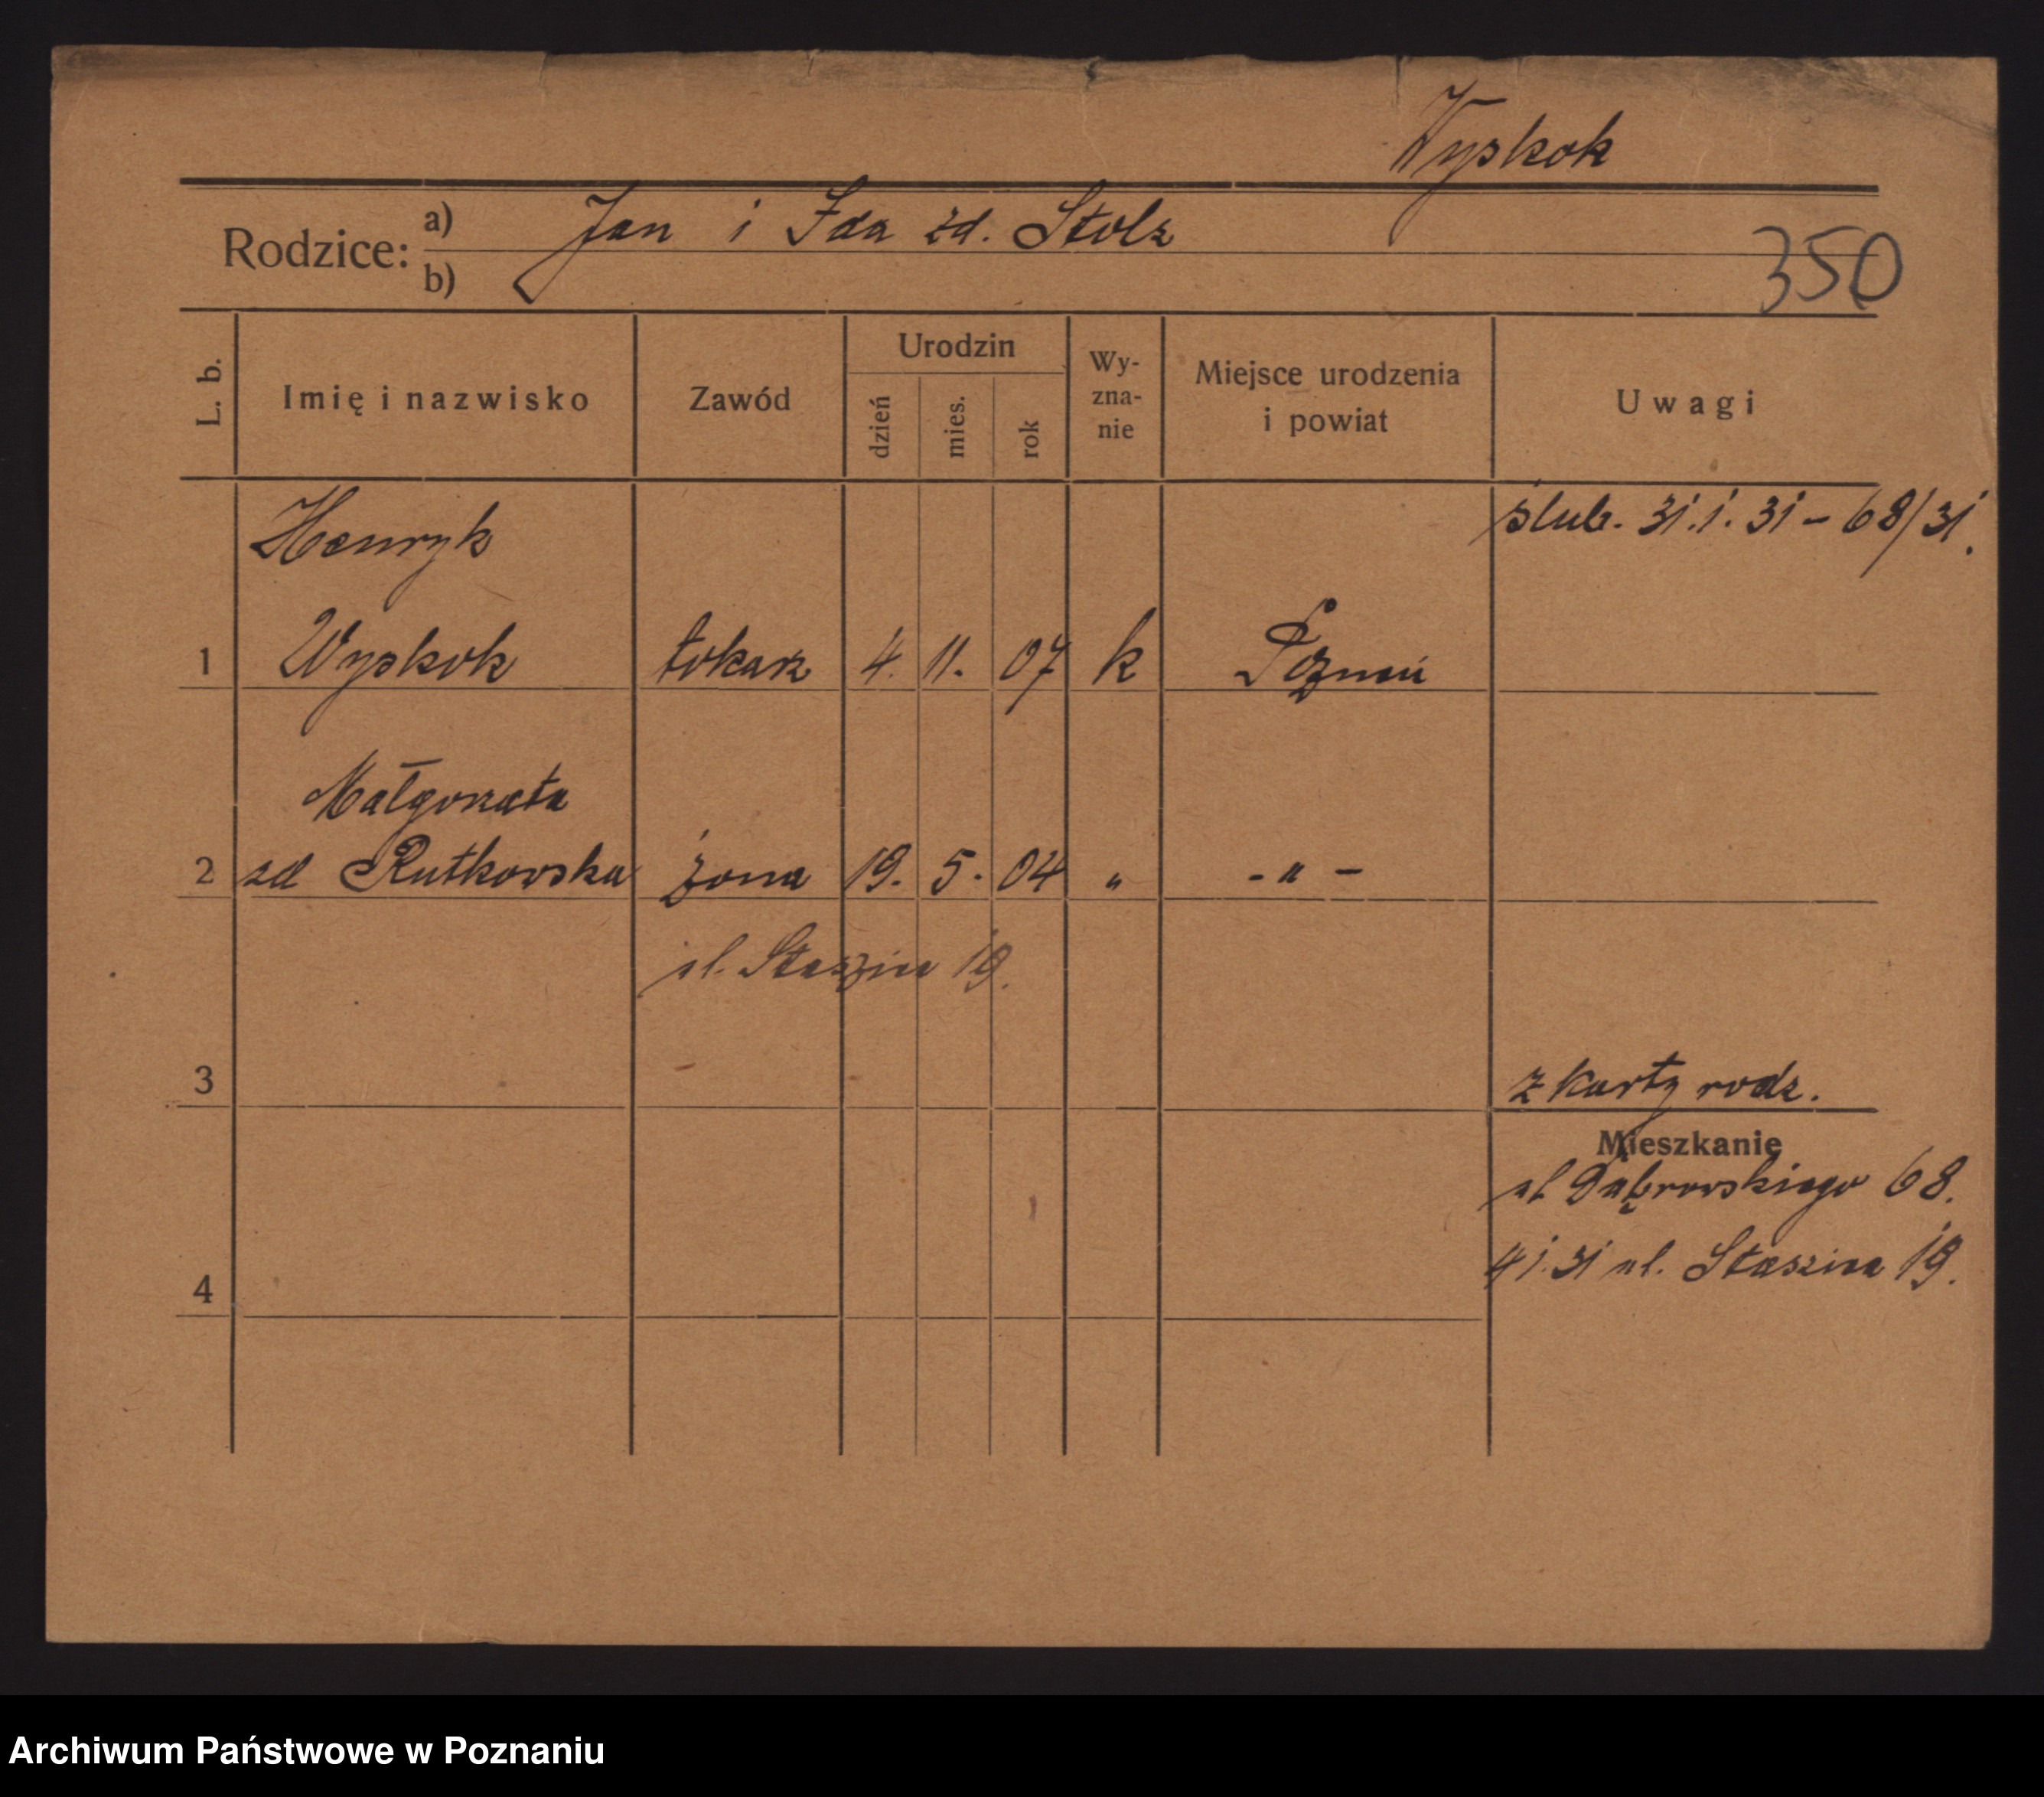 Wyskok
Rodzice: a) Jan i Ida zd. Stolz
b)
350
L. b. Imię i nazwisko Zawód Urodzin dzień mies. rok Wy-zna-nie Miejsce urodzenia i powiat Uwagi
Henryk ślub. 31.1.31 – 68/31.
1 Wyskok tokarz 4. 11. 07 k Poznań
Małgorzata
2 zd Rutkowska żona 19. 5. 04 " - " -
ul. Staszica 19.
3 z karty rodz.
Mieszkanie
ul Dąbrowskiego 68.
4 1.31 ul. Staszica 19.
4
Archiwum Państwowe w Poznaniu